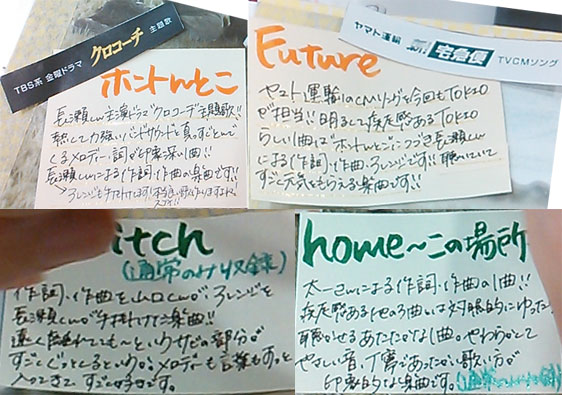 TBS系 金曜ドラマ クロコーチ 主題歌
ホントんとこ
長瀬くん主演ドラマ"クロコーチ"主題歌!!
熱くて力強いバンドサウンドと真っすぐとんで
くるメロディー・詞が印象深い1曲!!
長瀬くんによる作詞・作曲の楽曲です!!
アレンジも手掛けてます!
ヤマト運輸 新 宅急便 TVCMソング
Future
ヤマト運輸のCMソングを今回もTOKIO
が担当!! 明るくて疾走感あるTOKIO
らしい1曲は"ホントんとこ"につづき長瀬くん
による作詞・作曲・アレンジです!! 聴いていて
すごく元気をもらえる楽曲です!!
itch
(通常のみ収録)
作詞・作曲を山口くんが、アレンジを
長瀬くんが手掛けた楽曲!!
遠く離れても〜というサビの部分が
すごくぐっとくるというか、メロディーも言葉もすっと
入ってきて、すごく好きです。
home〜この場所
太一さんによる作詞・作曲の1曲!!
疾走感ある他の3曲とは対照的にゆった
聴かせるあたたかな1曲。やわらかくて
やさしい音、丁寧であったかい歌い方が
印象的な楽曲です。(通常のみ収録)